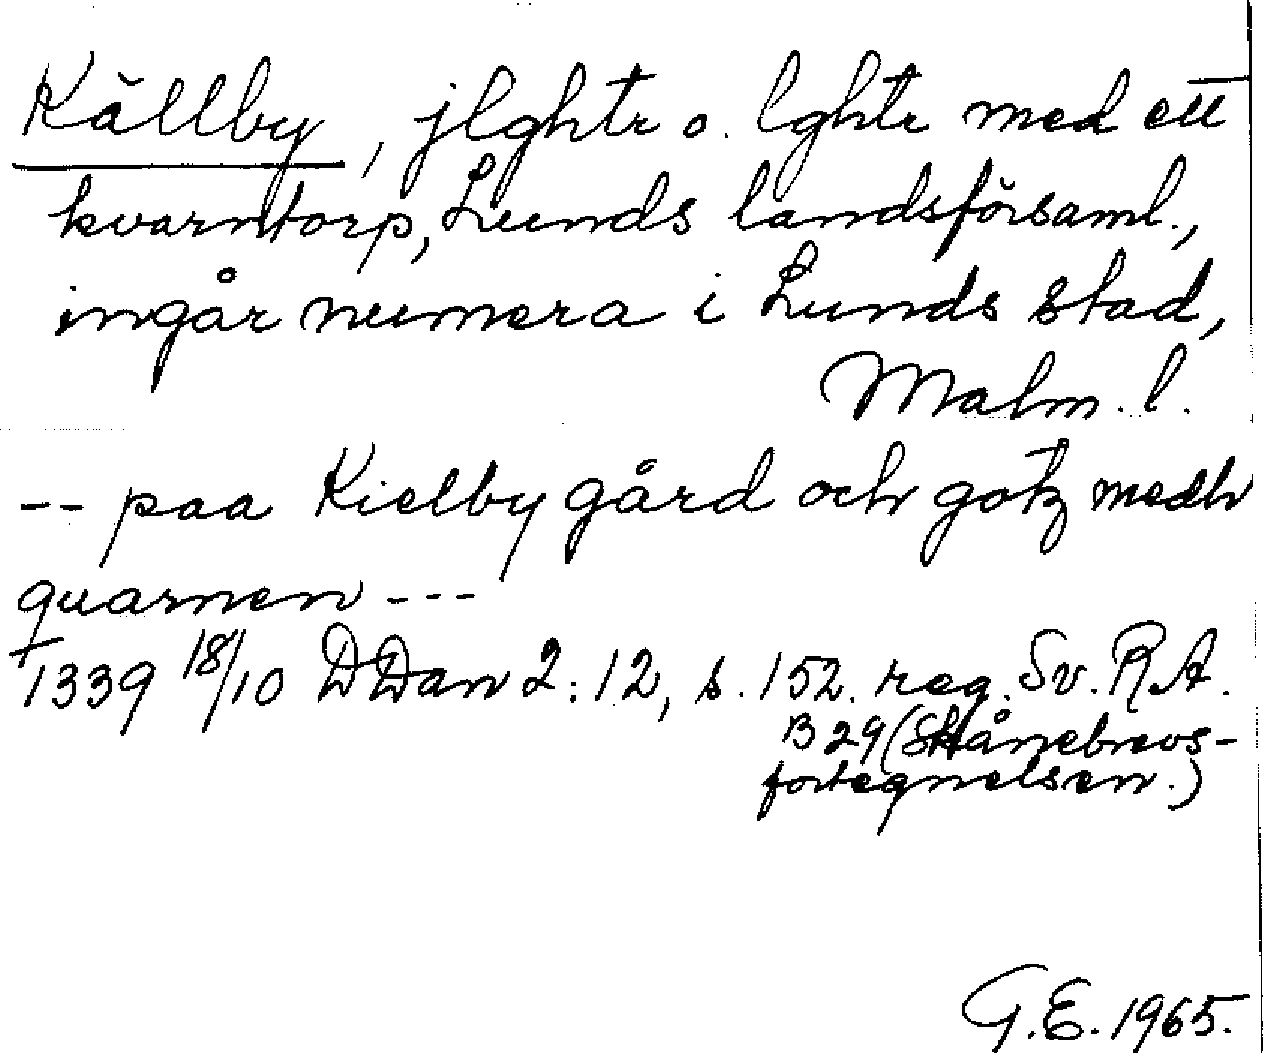 Källby, jlghtr o. lghtr med ett
kvarntorp, Lunds landsförsaml.,
ingår numera i Lunds stad,
Malm. l.
-- paa Kielby gård och gotz medh
quarnen ---
1339 18/10 DDan 2:12, s. 152. reg. Sv. R.A.
B 29 (Skånebrevs-
fortegnelsen.)
G.E. 1965.